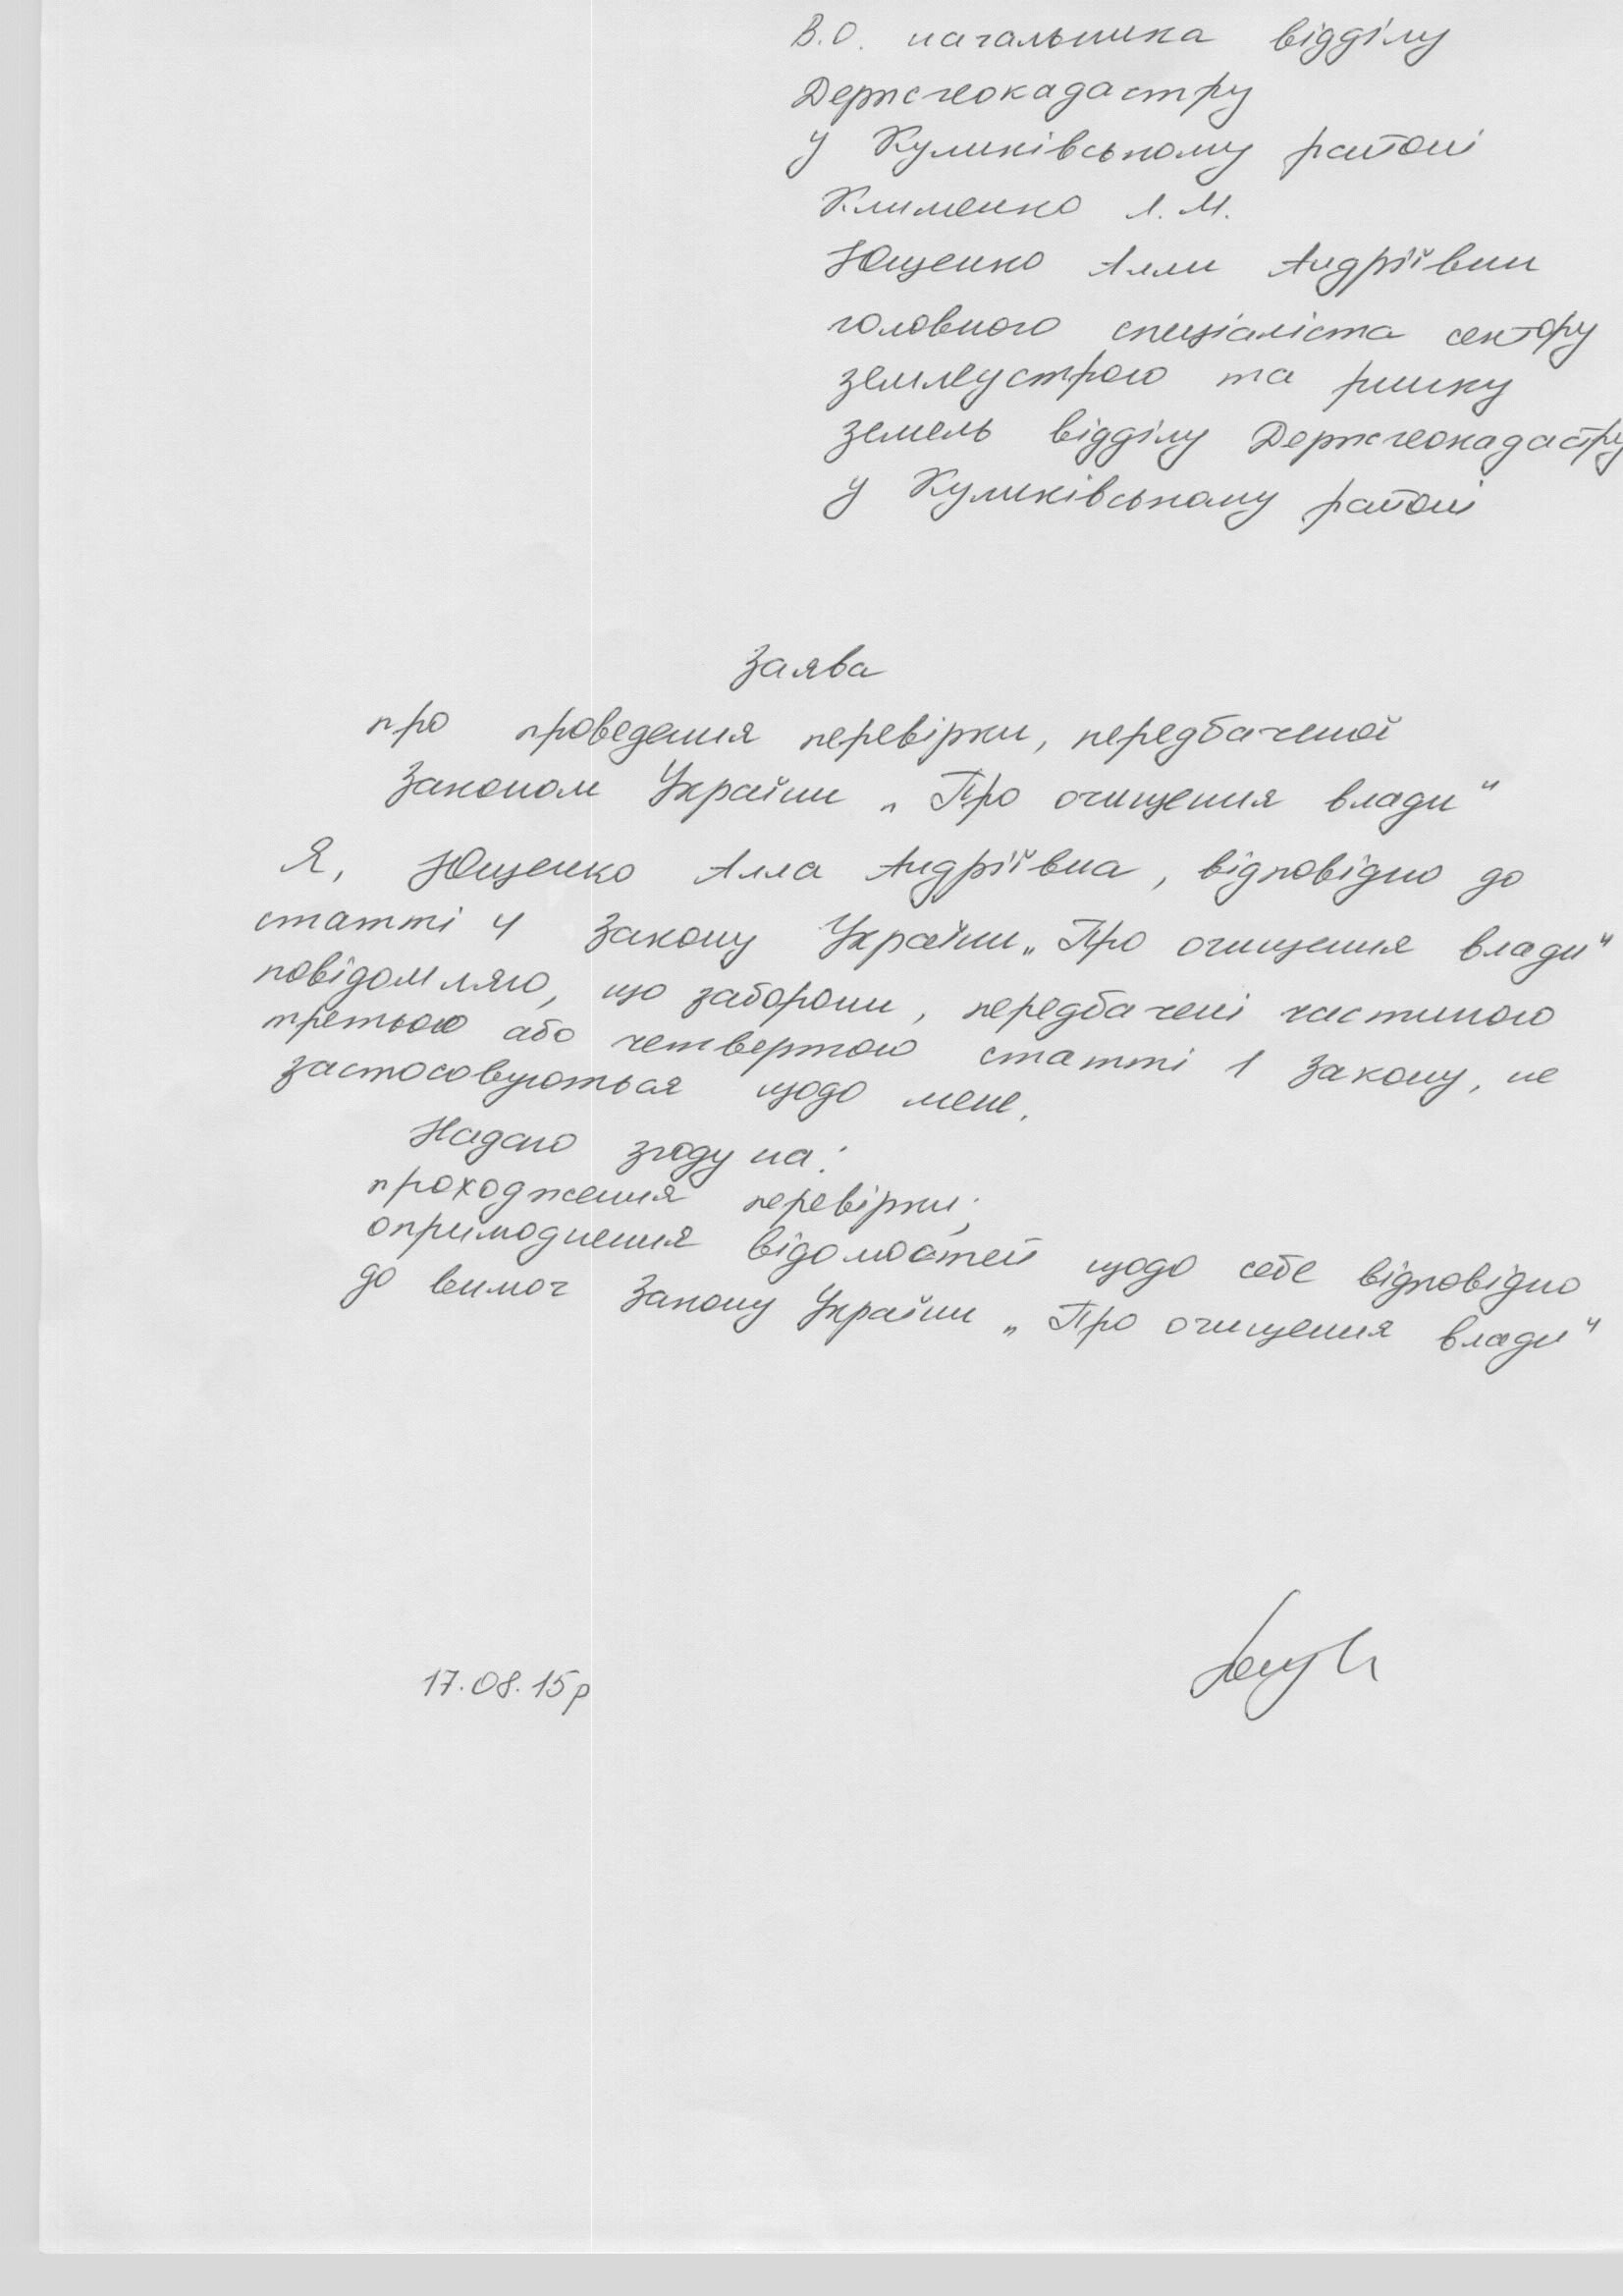 В.О. начальника відділу
Держгеокадастру
у Куликівському районі
Клименко Л.М.
Ющенко Алли Андріївни
головного спеціаліста сектору
землеустрою та ринку
земель відділу Держгеокадастру
у Куликівському районі
Заява
про проведення перевірки, передбаченої
Законом України „Про очищення влади"
Я, Ющенко Алла Андріївна, відповідно до
статті 4 Закону України „Про очищення влади"
повідомляю, що заборони, передбачені частиною
третьою або четвертою статті 1 Закону, не
застосовуються щодо мене.
Надаю згоду на:
проходження перевірки;
оприлюднення відомостей щодо себе відповідно
до вимог Закону України „Про очищення влади"
17.08.15р